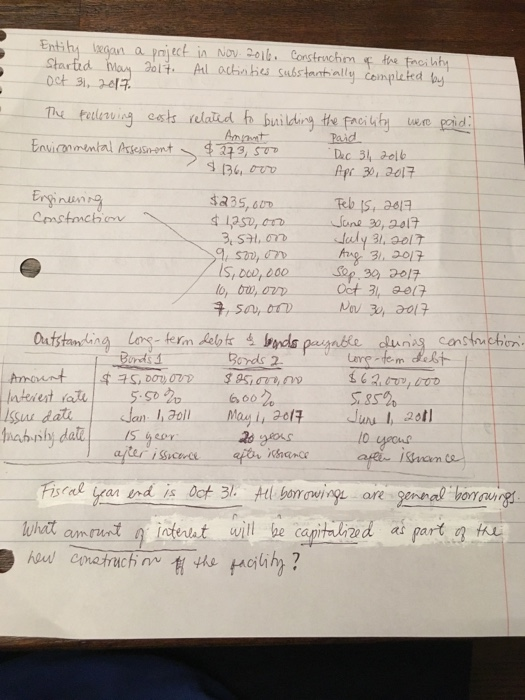 Entity began a project in Nov 2016. Construction of the facility
started May 2017. All activities substantially completed by
Oct 31, 2017.
The following costs related to building the facility were paid:
Amount Paid
Environmental Assessment $273,500 Dec 31, 2016
$136,000 Apr 30, 2017
Engineering $235,000 Feb 15, 2017
Construction $1,250,000 June 30, 2017
3,571,000 July 31, 2017
9,500,000 Aug 31, 2017
15,000,000 Sep 30, 2017
10,000,000 Oct 31, 2017
7,500,000 Nov 30, 2017
Outstanding long-term debts & bonds payable during construction:
Bonds 1 Bonds 2 Long-term debt
Amount $75,000,000 $85,000,000 $62,000,000
Interest rate 5.50% 6.00% 5.85%
Issue date Jan 1, 2011 May 1, 2017 June 1, 2011
Maturity date 15 year 20 years 10 years
after issuance after issuance after issuance
Fiscal year end is Oct 31. All borrowings are general borrowings.
What amount of interest will be capitalized as part of the
new construction of the facility?